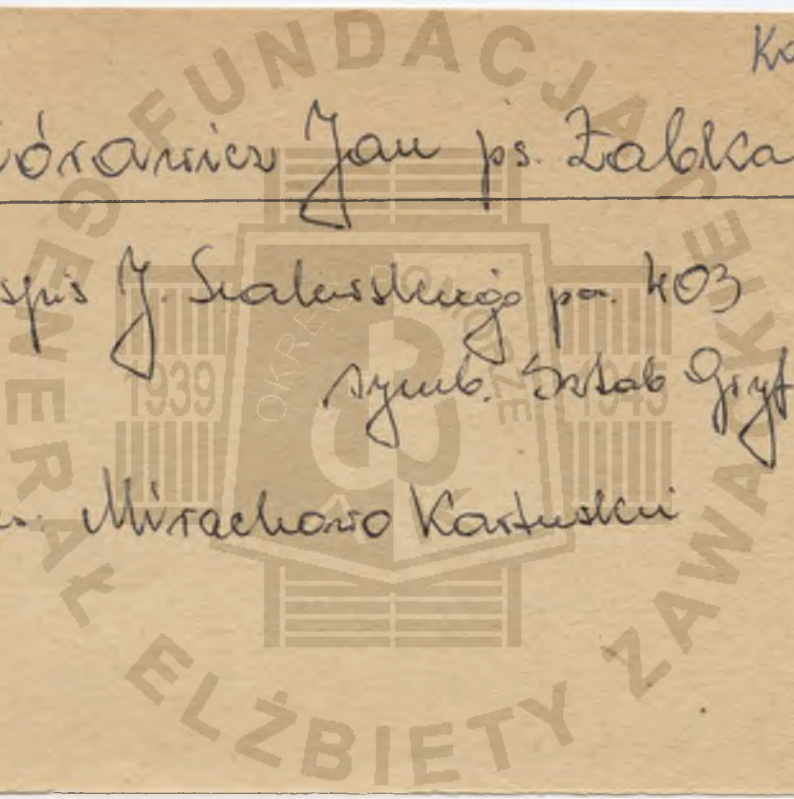 Ko
iórawicz Jan ps. Żabka
spis J. Szalewskiego poz. 403
symb. Sztab Gryf
Mirachowo Kartuski
FUNDACJA GENERAŁ ELŻBIETY ZAWACKIEJ
OKRĘG POMORZE
1939 1945